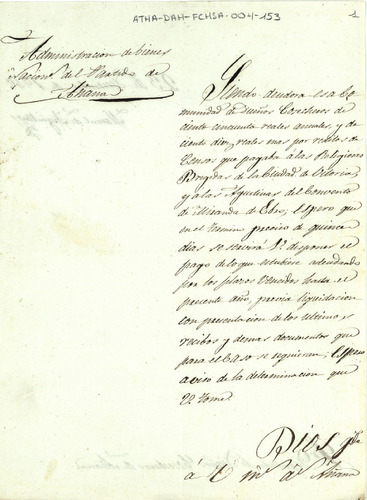 ATHA-DAH-FCHSA-004-153
1
Administracion de bienes
Nacion.s del Partido de
Añana
Siendo deudora esa Co
munidad de Dueños Cosecheros de
ciento cincuenta reales anuales, y de
ciento diez reales mas por reditos de
Censos que pagaba á las Religiosas
Brigidas de la Ciudad de Vitoria,
y á las Agustinas del Convento
de Miranda de Ebro; espero que
en el termino preciso de quince
dias se servirá V. disponer el
pago de lo que estubiere adeudando
por los plazos vencidos hasta el
presente año, previa liquidacion
con presentacion de los ultimos
recibos y demas documentos que
para el caso se requieran; Espero
aviso de la determinacion que
tome.
Dios gue
á V. m.s a.s Añana